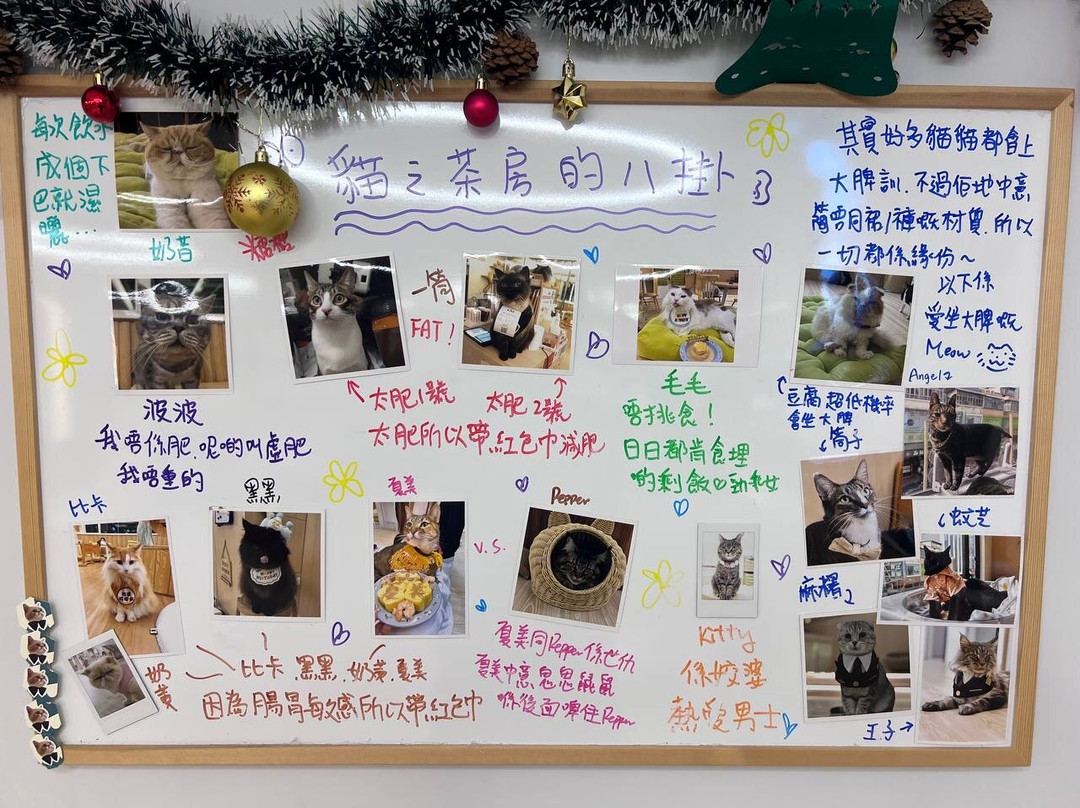 貓之茶房的八掛
每次飲水
成個下
巴就濕
曬...
奶昔
糯糯
其實好多貓貓都會上
大脾訓，不過佢地中意
簡啱用裙/褲嘅材質，所以
一切都係緣份~
以下係
愛坐大脾嘅
Meow
Angel2
波波
我唔係肥，呢啲叫虛肥
我唔重的
一筒
FAT!
太肥1號
太肥2號
太肥所以帶紅包巾減肥
毛毛
唔揀食！
日日都肯食埋
啲剩飯
豆腐 超低機率
會坐大脾
筒子
蚊芝
麻糬2
王子→
比卡
黑黑
夏美
v.s.
Pepper
奶黃
比卡、黑黑、奶黃、夏美
因為腸胃敏感所以帶紅包巾
夏美同Pepper係世仇
夏美中意鬼鬼鼠鼠
喺後面啤住Pepper
Kitty
係姣婆
熱愛男士